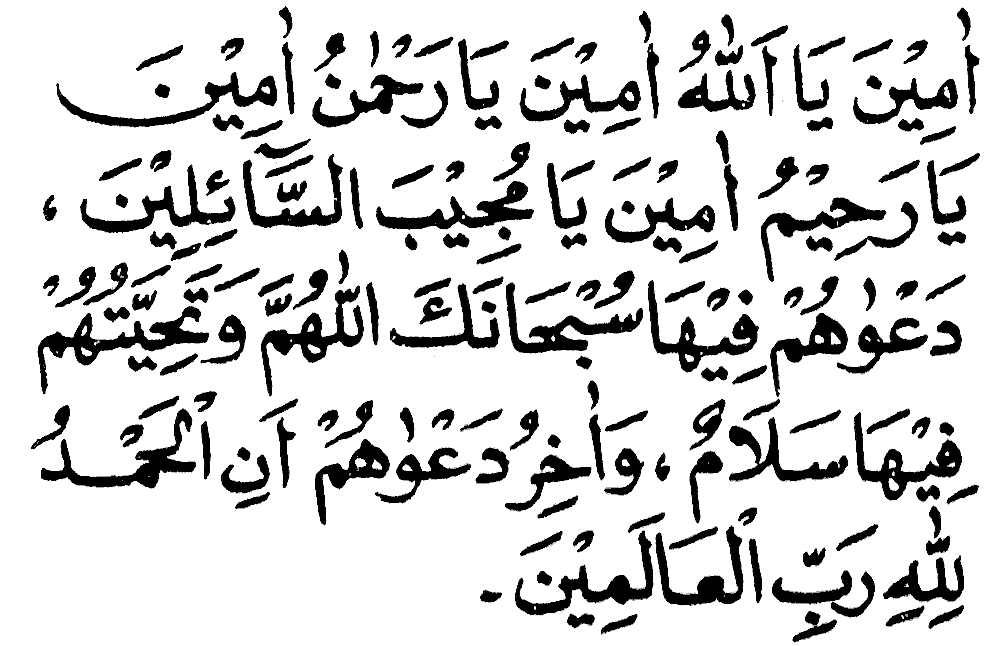 اٰمِيْنَ يَا اَللّٰهُ اٰمِيْنَ يَا رَحْمٰنُ اٰمِيْنَ
يَا رَحِيْمُ اٰمِيْنَ يَا مُجِيْبَ السَّآئِلِيْنَ ،
دَعْوٰهُمْ فِيْهَا سُبْحَانَكَ اللّٰهُمَّ وَتَحِيَّتُهُمْ
فِيْهَا سَلَامٌ ، وَاٰخِرُ دَعْوٰهُمْ اَنِ الْحَمْدُ
لِلّٰهِ رَبِّ الْعَالَمِيْنَ .